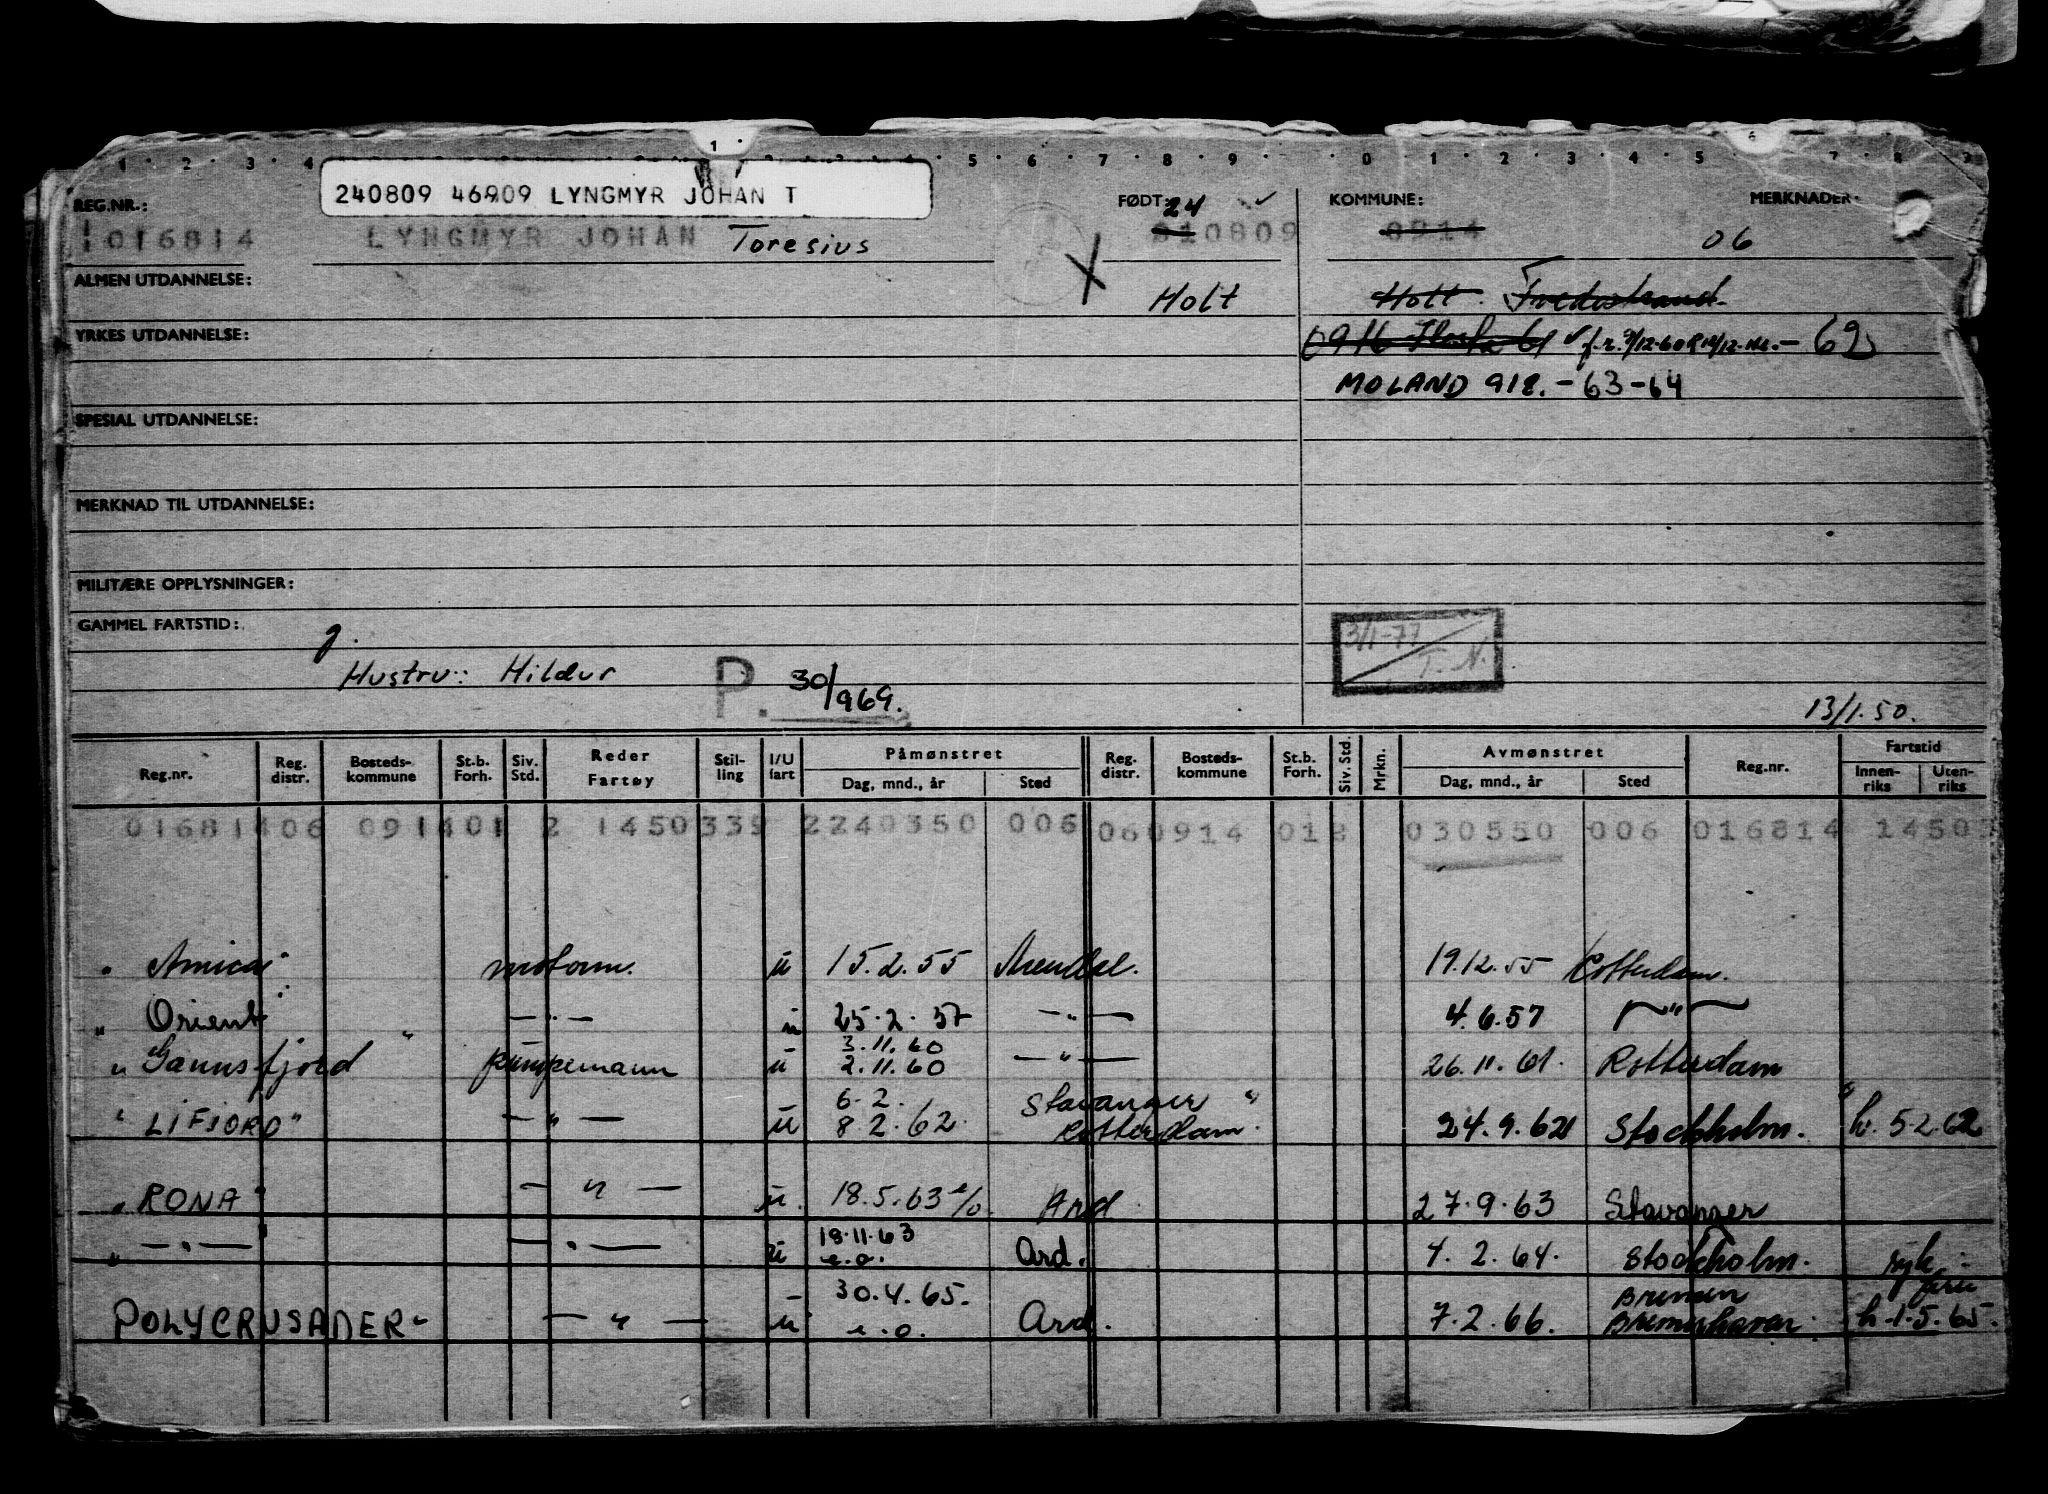 240809 46909 LYNGMYR JOHAN T
REG.NR.: FØDT: 24 KOMMUNE: MERKNADER:
016814 LYNGMYR JOHAN Toresius 010809 0914 06
ALMEN UTDANNELSE: Holt Holt.
YRKES UTDANNELSE: 69
MOLAND 912. - 63-64
SPESIAL UTDANNELSE:
MERKNAD TIL UTDANNELSE:
MILITÆRE OPPLYSNINGER:
GAMMEL FARTSTID: 3/1-77
g. T.N.
Hustru: Hildur P. 30/969.
13/1.50.
Reg.nr. Reg. distr. Bosteds-kommune St.b. Forh. Siv. Std. Reder Fartøy Stil-ling I/U fart Påmønstret Dag, mnd., år Sted Reg. distr. Bosteds-kommune St.b. Forh. Siv. Std. Mrkn. Avmønstret Dag, mnd., år Sted Reg.nr. Fartstid Innen-riks Uten-riks
016814 06 0914 01 2 1450 339 2 240350 006 06 0914 01 2 030550 006 016814 1450
" Amica" motorm. u 15.2.55 Arendal. 19.12.55 Rotterdam.
" Orient" — " — u 25.2.57 — " — 4.6.57 — " —
3.11.60
" Gannsfjord " pumpemann u 2.11.60 — " — 26.11.61. Rotterdam
6.2. Stavanger "
" LIFJORD" — " — u 8.2.62. Rotterdam. 24.9.62 Stockholm. h. 5.2.62
" RONA" — " — u. 18.5.63 e/o Ard 27.9.63 Stavanger
18.11.63
" — " — — " — u e.o. Ard. 4.2.64. Stockholm. syk.
30.4.65. Bremen
POLYCRUSADER — " — u e.o. Ard. 7.2.66. Bremerhaven. h.1.5.65.